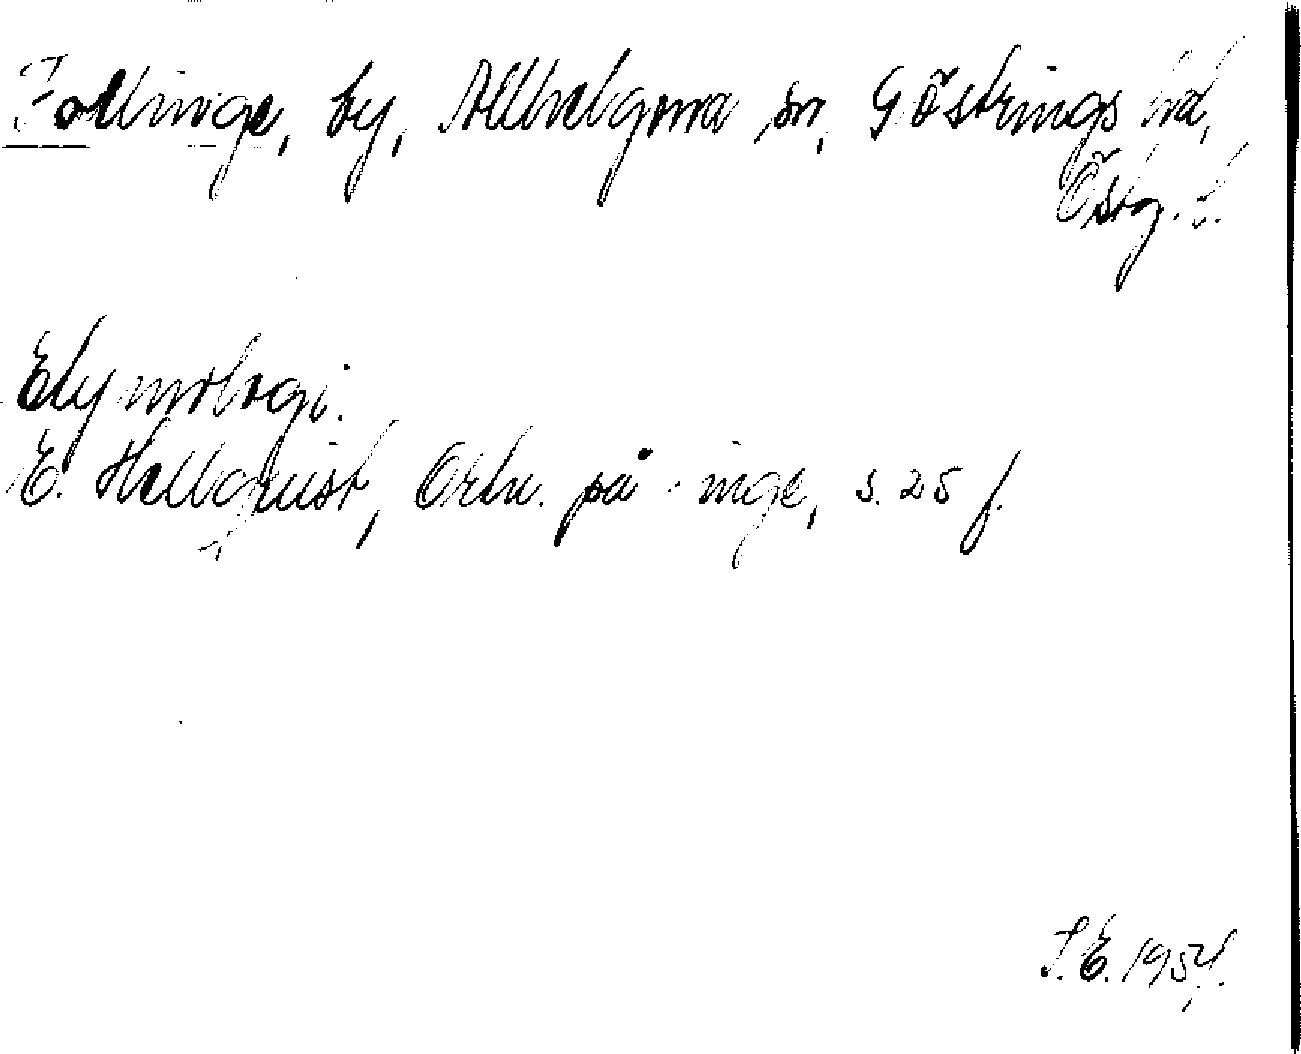 Follinge, by, Allhelgona sn, Göstrings hd,
Östg. l.
Etymologi.
E. Hellquist, Ortn. på -inge, s. 25 f.
S.E. 1954.